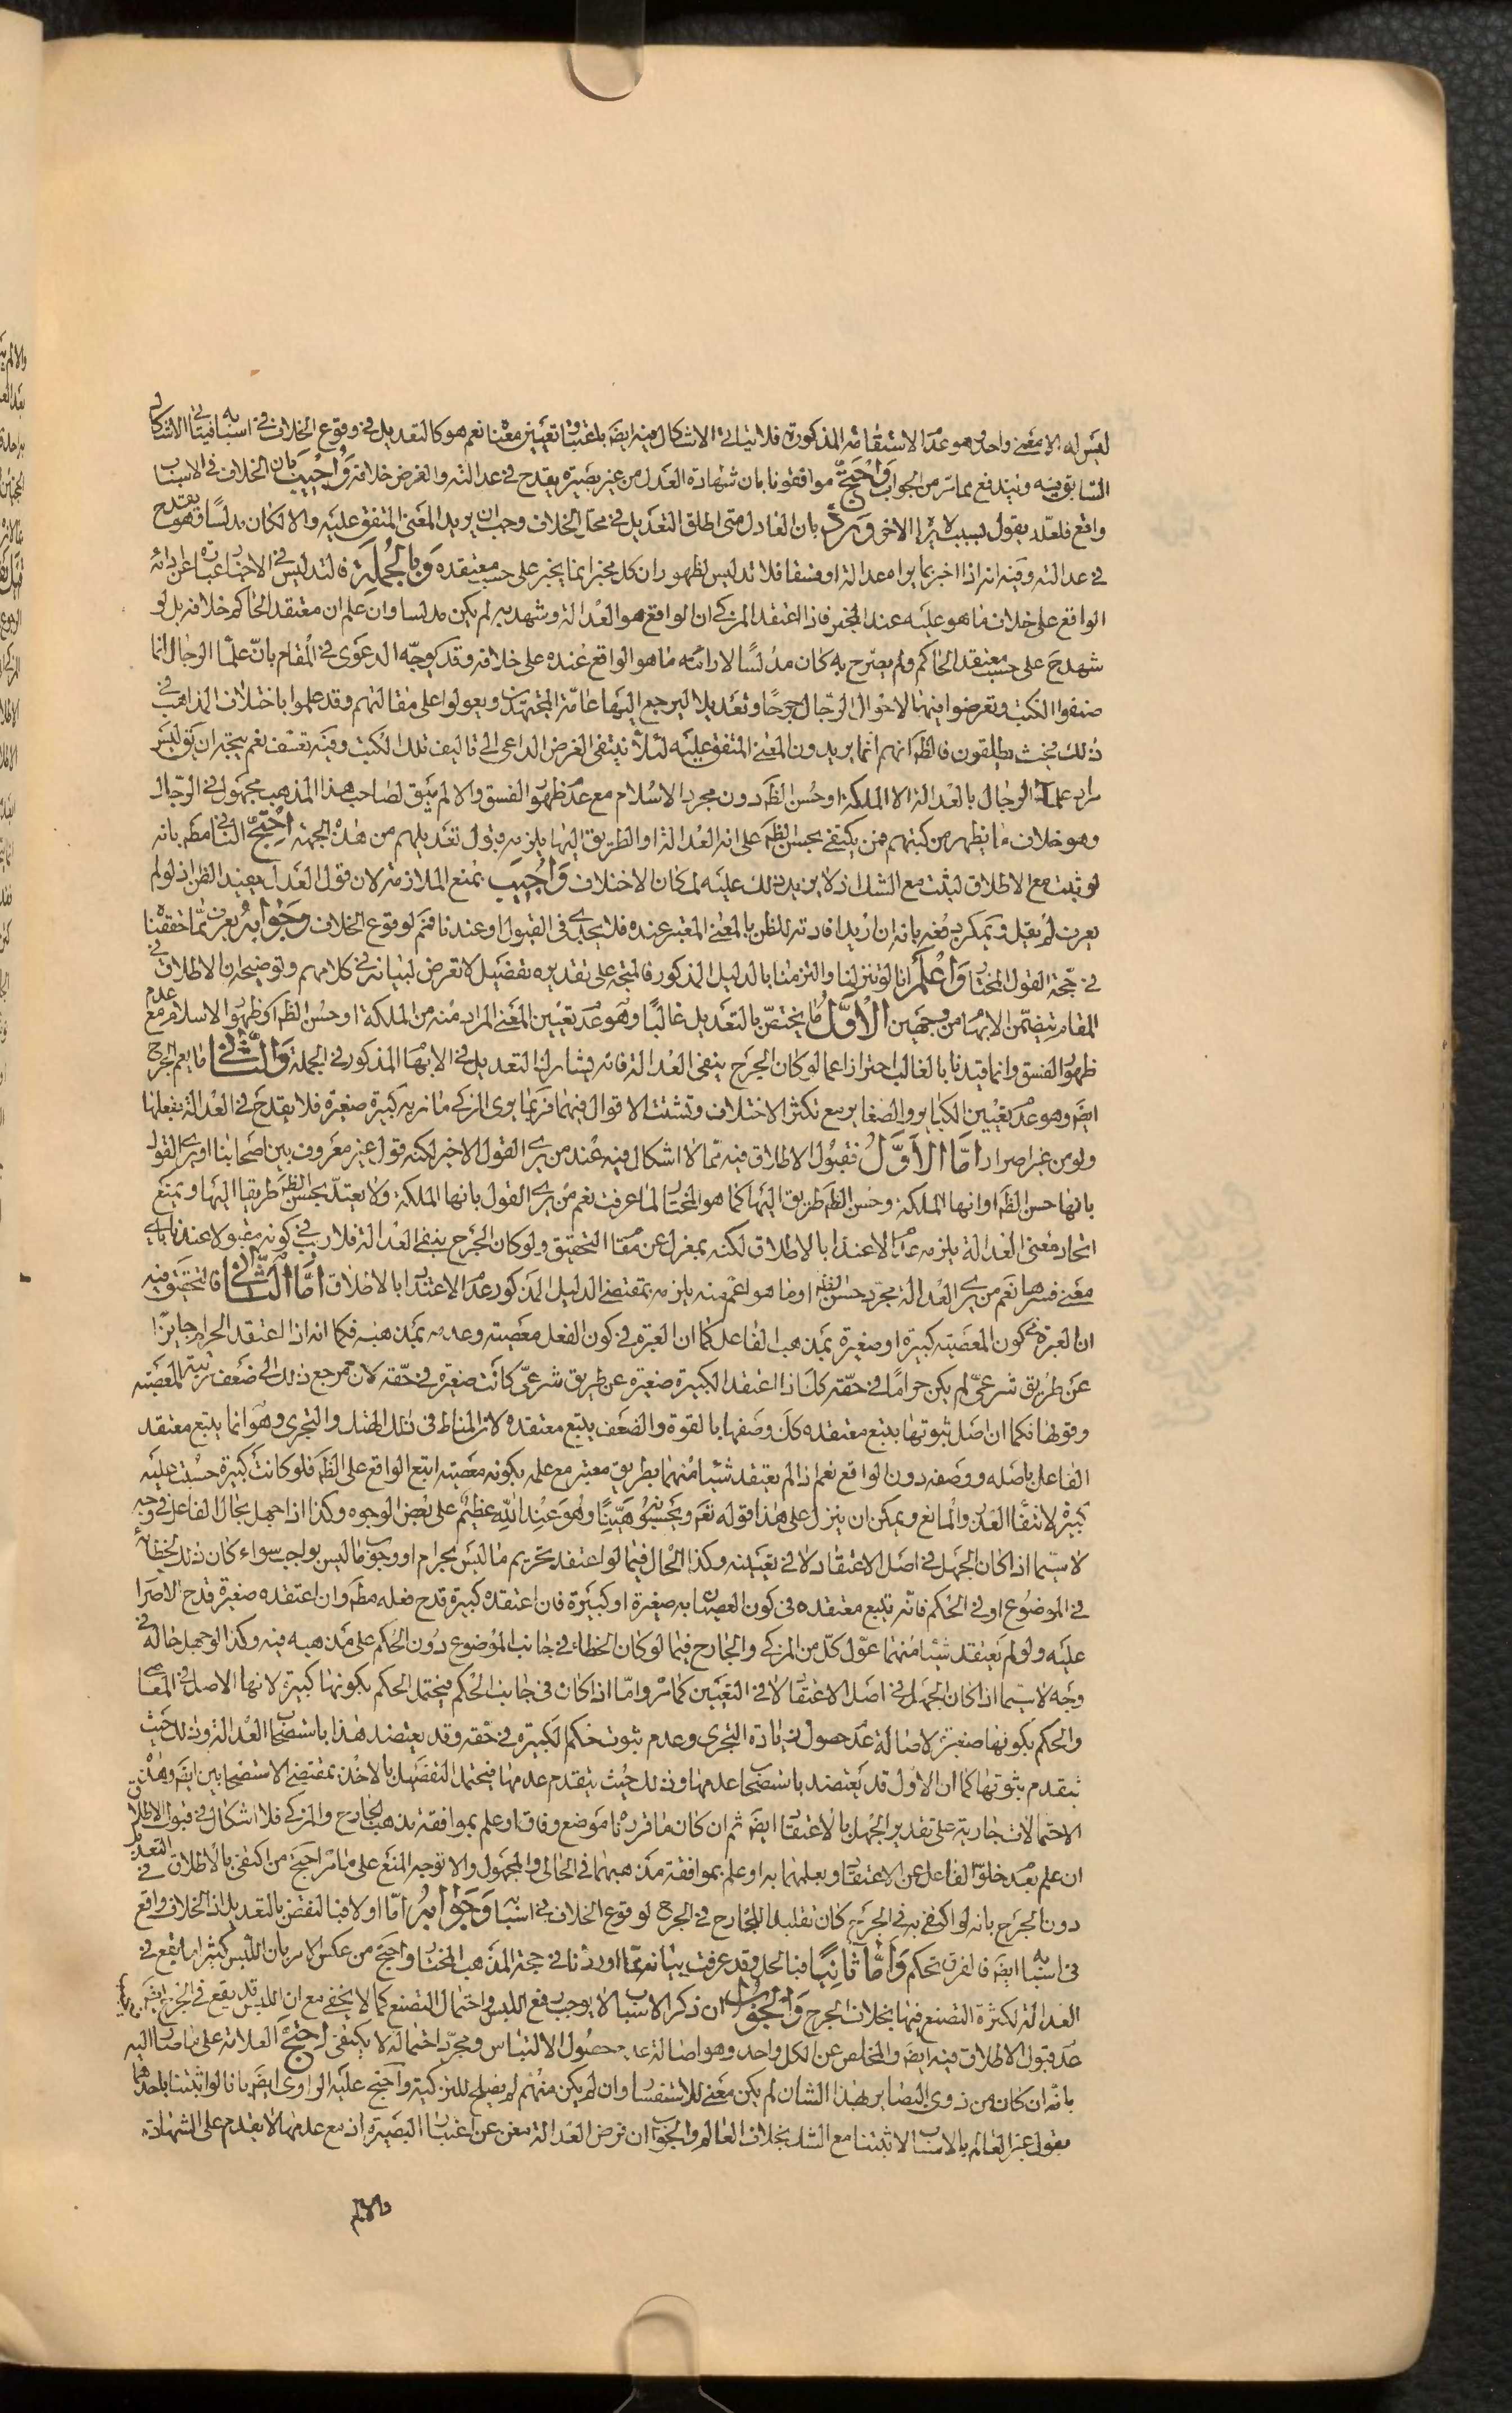 ليس له الا معنى واحد وهو عدم الاستقامة المذكورة فلا يتاتى الاشكال فيه ايضا باعتبار تعيين معنا نعم هو كالتعديل في وقوع الخلاف في اسبابه فيتاتى الاشكال
السابق فيه ويندفع بما مر من الجواب واحتج موافقونا بان شهادة العدل من غير بصيرة يقدح في عدالته والفرض خلافه واجيب بان الخلاف في الاسباب
واقع فلعله يقول بسبب لا يراه الاخر ورد بان العادل متى اطلق التعديل في محل الخلاف وجب ان يريد المعنى المتفق عليه والا لكان مدلسا وهو يقدح
في عدالته وفيه انه اذا اخبر بما يراه عدالة او فسقا فلا تدليس لظهور ان كل مخبر انما يخبر على حسب معتقده وبالجملة فالتدليس في الاخبار عبارة عن ارائه
الواقع على خلاف ما هو عليه عند المخبر فاذا اعتقد المزكى ان الواقع هو العدالة وشهد به لم يكن مدلسا وان علم ان معتقد الحاكم خلافه بل لو
شهد ح على حسب معتقد الحاكم ولم يصرح به كان مدلسا لارائته ما هو الواقع عنده على خلافه وقد يوجه الدعوى في المقام بان علماء الرجال انما
صنفوا الكتب وتعرضوا فيها لاحوال الرجال جرحا وتعديلا ليرجع اليها عامة المجتهدين ويعولوا على مقالتهم وقد علموا باختلاف المذاهب في
ذلك فحيث يطلقون فالظ انهم انما يريدون المعنى المتفق عليه لئلا ينتفى الغرض الداعى الى تاليف تلك الكتب وفيه تعسف نعم يتجه ان يق ليس
مراد علماء الرجال بالعدالة الا الملكة او حسن الظ دون مجرد الاسلام مع عدم ظهور الفسق والا لم يبق لصاحب هذا المذهب مجهول في الرجال
وهو خلاف ما يظهر من كتبهم فمن يكتفى بحسن الظ على انه العدالة او الطريق اليها يلزمه قبول تعديلهم من هذه الجهة احتج النافى مط بانه
لو ثبت مع الاطلاق لثبت مع الشك اذ لا يزيد ذلك عليه لمكان الاختلاف واجيب بمنع الملازمة لان قول العدل يفيد الظن اذ لو لم
يعرف لم يقبل ويمكن دفعه بانه ان اريد افادته للظن بالمعنى المعتبر عنده فلا يجدى في القبول او عندنا فمم لوقوع الخلاف وجوابه يعرف مما حققنا
في حجة القول المختار واعلم انا لو تنزلنا والتزمنا بالدليل المذكور فالمتجه على تقديره تفصيل لا تعرض لبيانه في كلامهم وتوضيحه ان الاطلاق في
المقام يتضمن الابهام من وجهين الاول ما يختص بالتعديل غالبا وهو عدم تعيين المعنى المراد منه من الملكة او حسن الظ او ظهور الاسلام مع عدم
ظهور الفسق وانما قيدنا بالغالب احترازا عما لو كان الجرح بنفى العدالة فانه يشارك التعديل في الابهام المذكور في الجملة والثانى ما يعم الجرح
ايض وهو عدم تعيين الكباير والصغاير مع تكثر الاختلاف وتشتت الاقوال فيهما فربما يرى المزكى ما نريه كبيرة صغيرة فلا يقدح في العدالة بفعلها
ولو من غير اصرار اما الاول فقبول الاطلاق فيه مما لا اشكال فيه عند من يرى القول الاخير لكنه قول غير معروف بين اصحابنا او يرى القول
بانها حسن الظ او انها الملكة وحسن الظ طريق اليها كما هو المختار لما عرفت نعم من يرى القول بانها الملكة ولا يعتد بحسن الظ طريقا اليها ويمنع
اتحاد معنى العدالة يلزمه عدم الاعتداد بالاطلاق لكنه بمعزل عن مقام التحقيق ولو كان الجرح بنفى العدالة فلا ريب في كونه مقبولا عندنا باى
معنى فسرها نعم من يرى العدالة مجرد حسن الظ او ما هو اعم منه يلزمه بمقتضى الدليل المذكور عدم الاعتداد بالاطلاق اما الثانى فالتحقيق فيه
ان العبرة في كون المعصية كبيرة او صغيرة بمذهب الفاعل كما ان العبرة في كون الفعل معصية وعدمه بمذهبه فكما انه اذا اعتقد الحرام جايزا
عن طريق شرعى لم يكن حراما في حقه كك اذا اعتقد الكبيرة صغيرة عن طريق شرعى كانت صغيرة في حقه لان مرجع ذلك الى ضعف رتبة المعصية
وقوتها فكما ان اصل ثبوتها يتبع معتقده كك وصفها بالقوة والضعف يتبع معتقده لان المناط في ذلك الهتك والتجرى وهو انما يتبع معتقد
الفاعل باصله ووصفه دون الواقع نعم اذا لم يعتقد شيئا منهما بطريق معتبر مع علمه بكونه معصية اتبع الواقع على الظ فلو كانت كبيرة حسبت عليه
كبيرة لانتفاء العذر والمانع ويمكن ان ينزل على هذا قوله تعم وتحسبونه هينا وهو عند الله عظيم على بعض الوجوه وكذا اذا جهل بحال الفاعل في وجه
لا سيما اذا كان الجهل في اصل الاعتقاد لا في تعيينه وكذا الحال فيما لو اعتقد تحريم ما ليس بحرام او وجوب ما ليس بواجب سواء كان ذلك لخطائه
في الموضوع او في الحكم فانه يتبع معتقده في كون العصيان به صغيرة او كبيرة فان اعتقده كبيرة قدح فعله مط وان اعتقده صغيرة قدح الاصرار
عليه ولو لم يعتقد شيئا منهما عول كل من المزكى والجارح فيما لو كان الخطاء في جانب الموضوع دون الحكم على مذهبه فيه وكذا لو جهل حاله في
وجه لا سيما اذا كان الجهل في اصل الاعتقاد لا في التعيين كما مر واما اذا كان في جانب الحكم فيحتمل الحكم بكونها كبيرة لانها الاصل في المعاصى
والحكم بكونها صغيرة لاصالة عدم حصول زيادة التجرى وعدم ثبوت حكم الكبيرة في حقه وقد يعتضد هذا باستصحاب العدالة وذلك حيث
يتقدم ثبوتها كما ان الاول قد يعتضد باستصحاب عدمها وذلك حيث يتقدم عدمها فيحتمل التفصيل بالاخذ بمقتضى الاستصحابين ايض وهذه
الاحتمالات جارية على تقدير الجهل بالاعتقاد ايض ثم ان كان ما قررنا موضع وفاق او علم بموافقة مذهب الجارح والمزكى فلا اشكال في قبول الاطلاق
ان علم بعدم خلو الفاعل عن الاعتقاد وبعلمهما به او علم بموافقة مذهبهما في الخالى والمجهول والا توجه المنع على ما مر احتج من اكتفى بالاطلاق في التعديل
دون الجرح بانه لو اكتفى به في الجرح كان تقليدا للجارح في الجرح لوقوع الخلاف في اسبابه وجوابه اما اولا فبالنقض بالتعديل اذ الخلاف واقع
في اسبابه ايض فالفرق تحكم واما ثانيا فبالحل وقد عرفت بيانه مما اوردنا في حجة المذهب المختار واحتج من عكس الامر بان اللبس كثيرا ما يقع في
العدالة لكثرة التصنع فيها بخلاف الجرح والجواب ان ذكر الاسباب لا يوجب رفع اللبس واحتمال التصنع كما لا يخفى مع ان اللبس قد يقع في الجرح ايض
عدم قبول الاطلاق فيه ايض والمخلص عن الكل واحد وهو اصالة عدم حصول الالتباس ومجرد احتماله لا يكتفى احتج العلامة على ما صار اليه
بانه ان كان من ذوى البصاير بهذا الشان لم يكن معنى للاستفسار وان لم يكن منهم لم يصلح للتزكية واحتج عليه الراوى ايض بانا لو اثبتنا باحدهما
بقول غير العالم بالاسباب لاثبتنا مع الشك بخلاف العالم والجواب ان فرض العدالة مغن عن اعتبار البصيرة اذ مع عدمها لا يقدم على الشهادة
والا لم